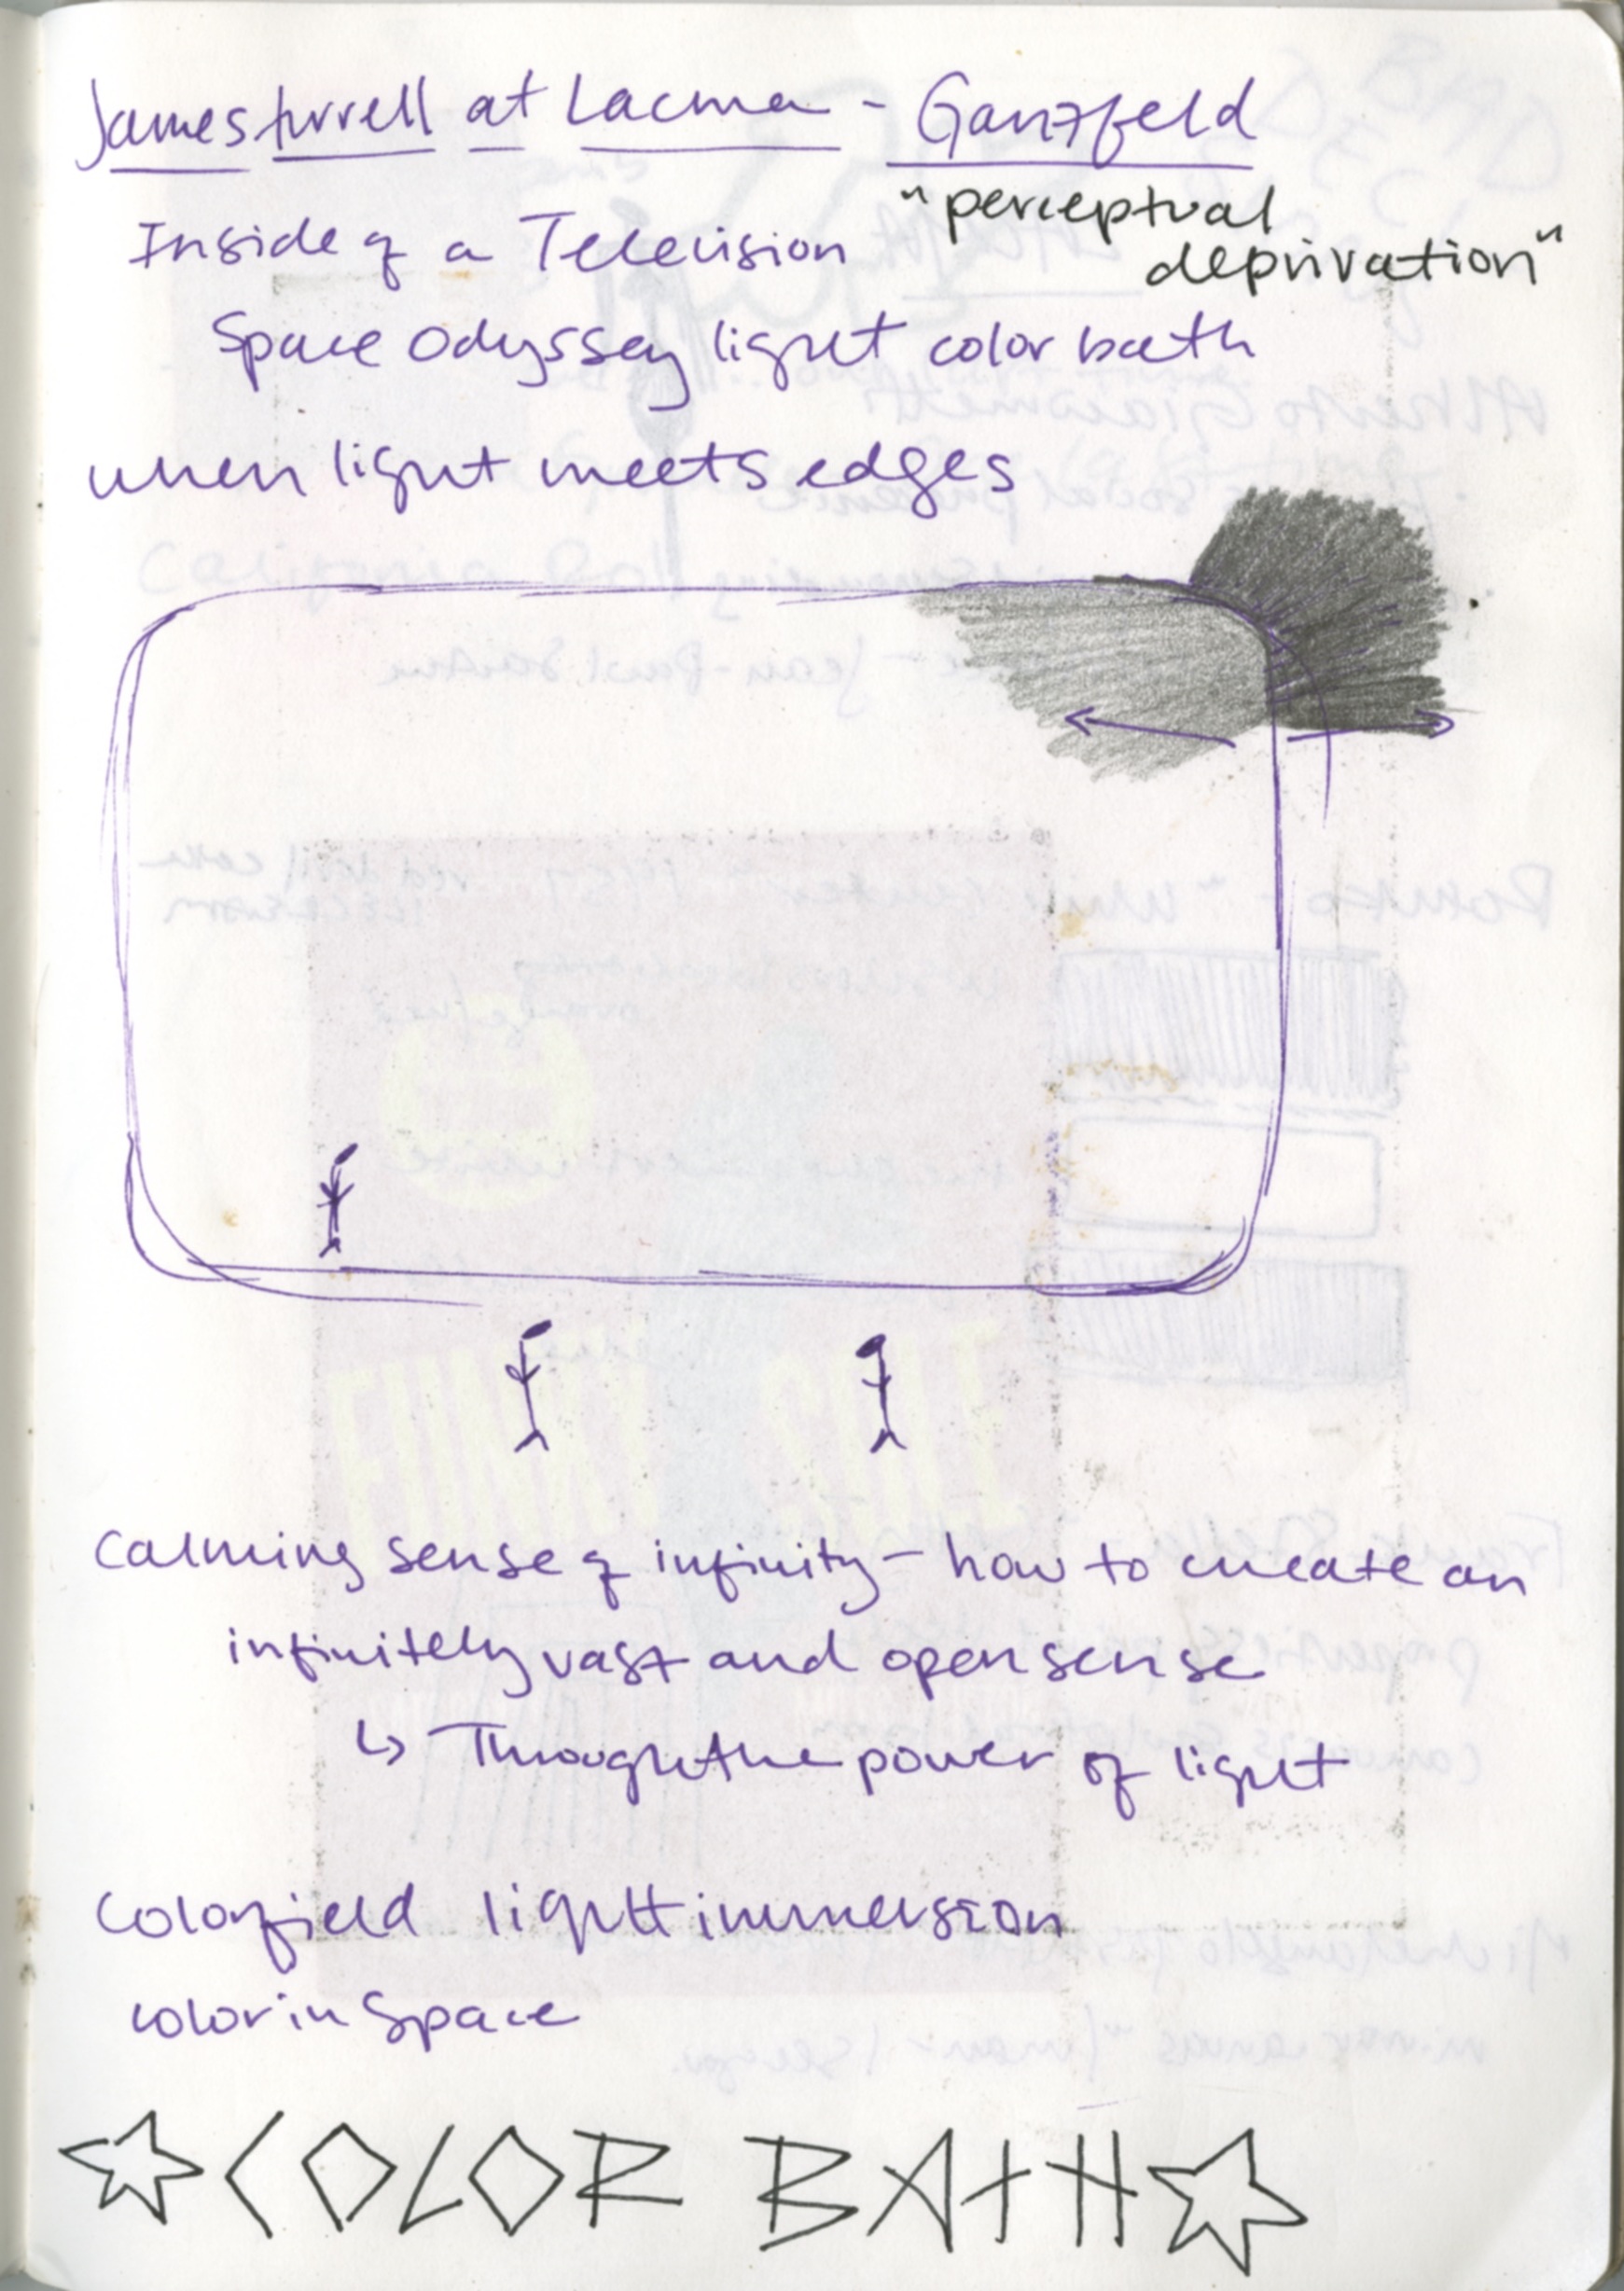 James turrell at Lacma - Ganzfeld
"perceptual
deprivation"
Inside of a Television
Space Odyssey light color bath
when light meets edges
Calming sense of infinity - how to create an
infinitely vast and open sense
↳ Through the power of light
Colorfield light immersion
color in Space
☆ COLOR BATH ☆